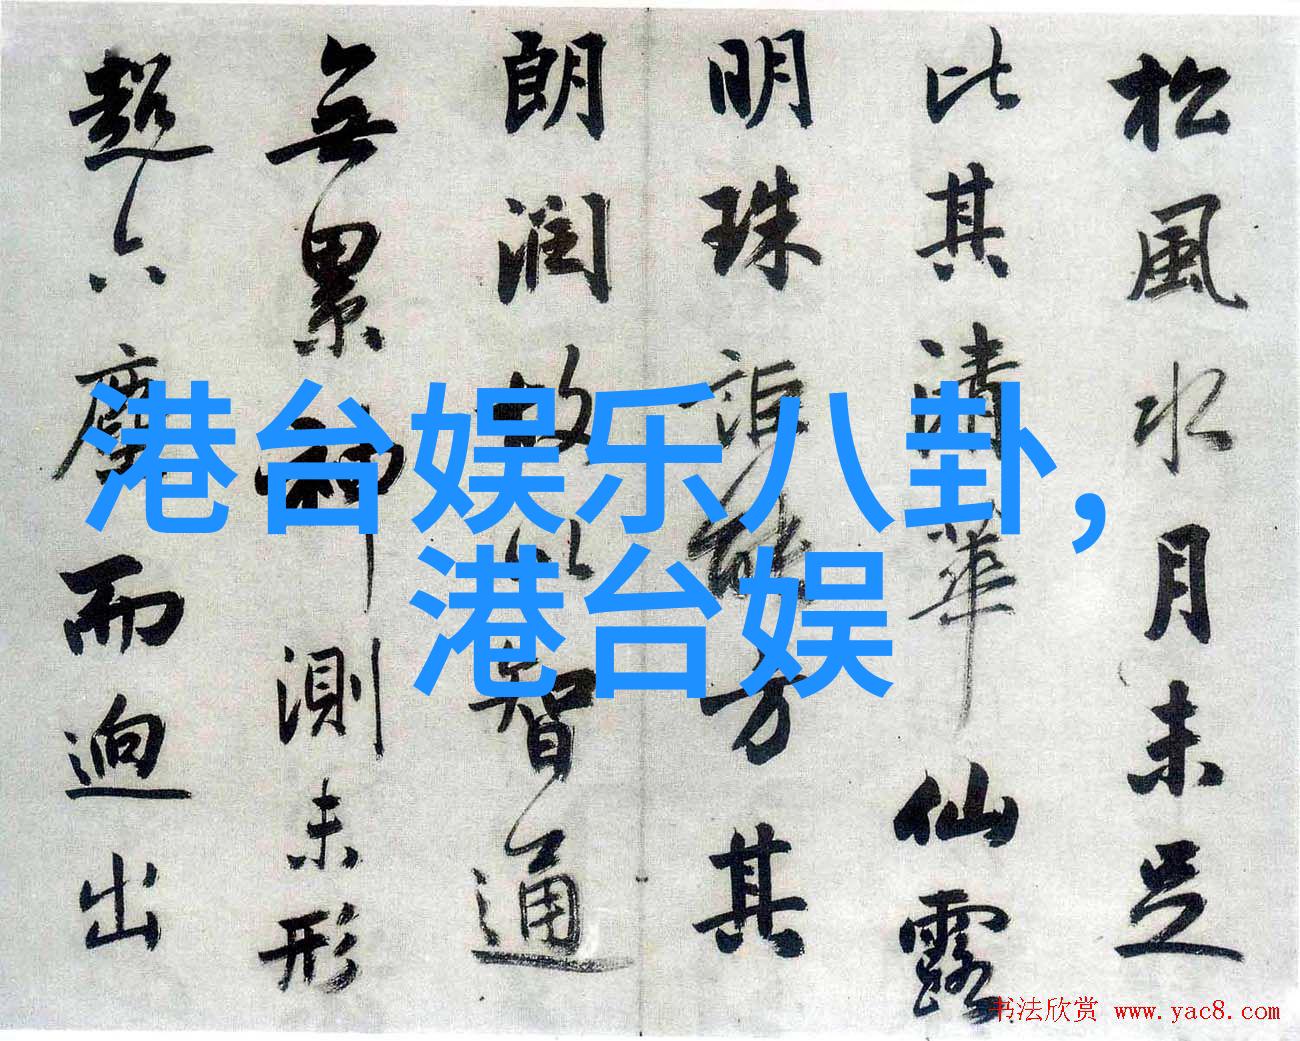 松風水月未足
比其清華仙露
明珠詎能方其
朗潤故以智通
無累神測未形
超六塵而迥出
港台娱乐八卦，
港台娱
书法欣赏 www.yac8.com